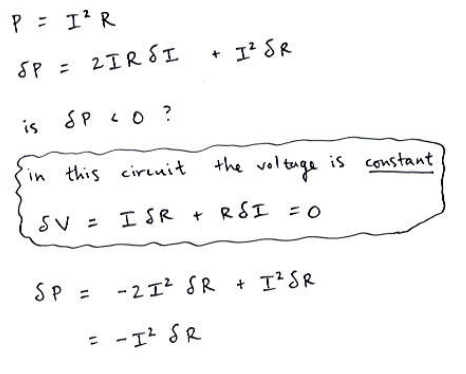 P = I² R
δP = 2IRδI + I² δR
is δP < 0 ?
in this circuit the voltage is constant
δV = I δR + RδI = 0
δP = -2I² δR + I²δR
= -I² δR